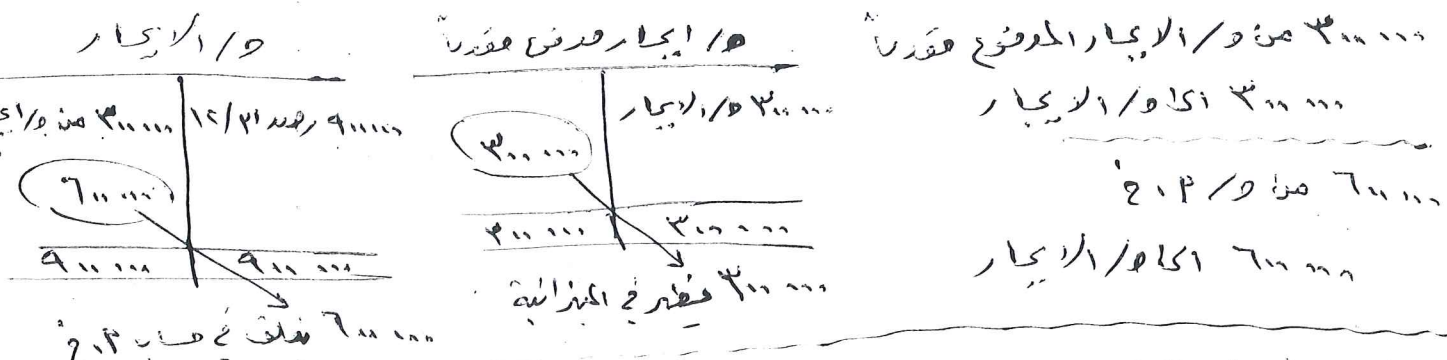 ٣٠٠٠٠٠ من ح/ الايجار المدفوع مقدماً
٣٠٠٠٠٠ الى ح/ الايجار
٦٠٠٠٠٠ من ح/ أ.خ
٦٠٠٠٠٠ الى ح/ الايجار
ح/ ايجار مدفوع مقدماً
٣٠٠٠٠٠ ح/ الايجار
٣٠٠٠٠٠
٣٠٠٠٠٠ ٣٠٠٠٠٠
٣٠٠٠٠٠ يظهر في الميزانية
ح/ الايجار
٩٠٠٠٠٠ رصيد ٣١/١٢ ٣٠٠٠٠٠ من ح/
٦٠٠٠٠٠
٩٠٠٠٠٠ ٩٠٠٠٠٠
٦٠٠٠٠٠ تغلق في حساب أ.خ